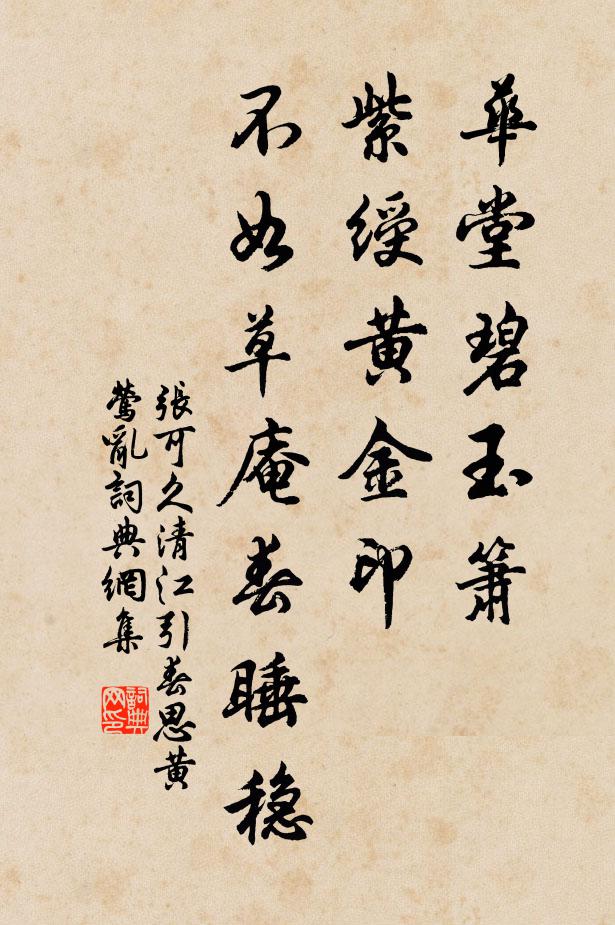 華堂碧玉簫
紫綬黄金印
不如草庵春睡穏
張可久清江引春思黄
鶯亂詞典網集
詞典网印